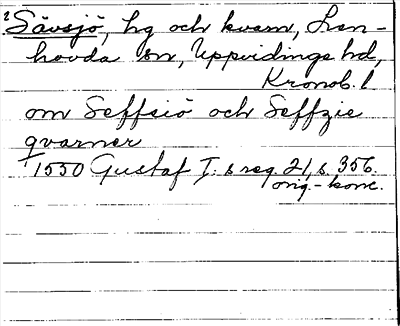 2 Sävsjö, hg och kvarn, Len-
hovda sn, Uppvidinge hd,
Kronob. l
om Seffsiö och Seffzie
qvarner
1550 Gustaf I:s reg. 21, s. 356.
orig.-konc.